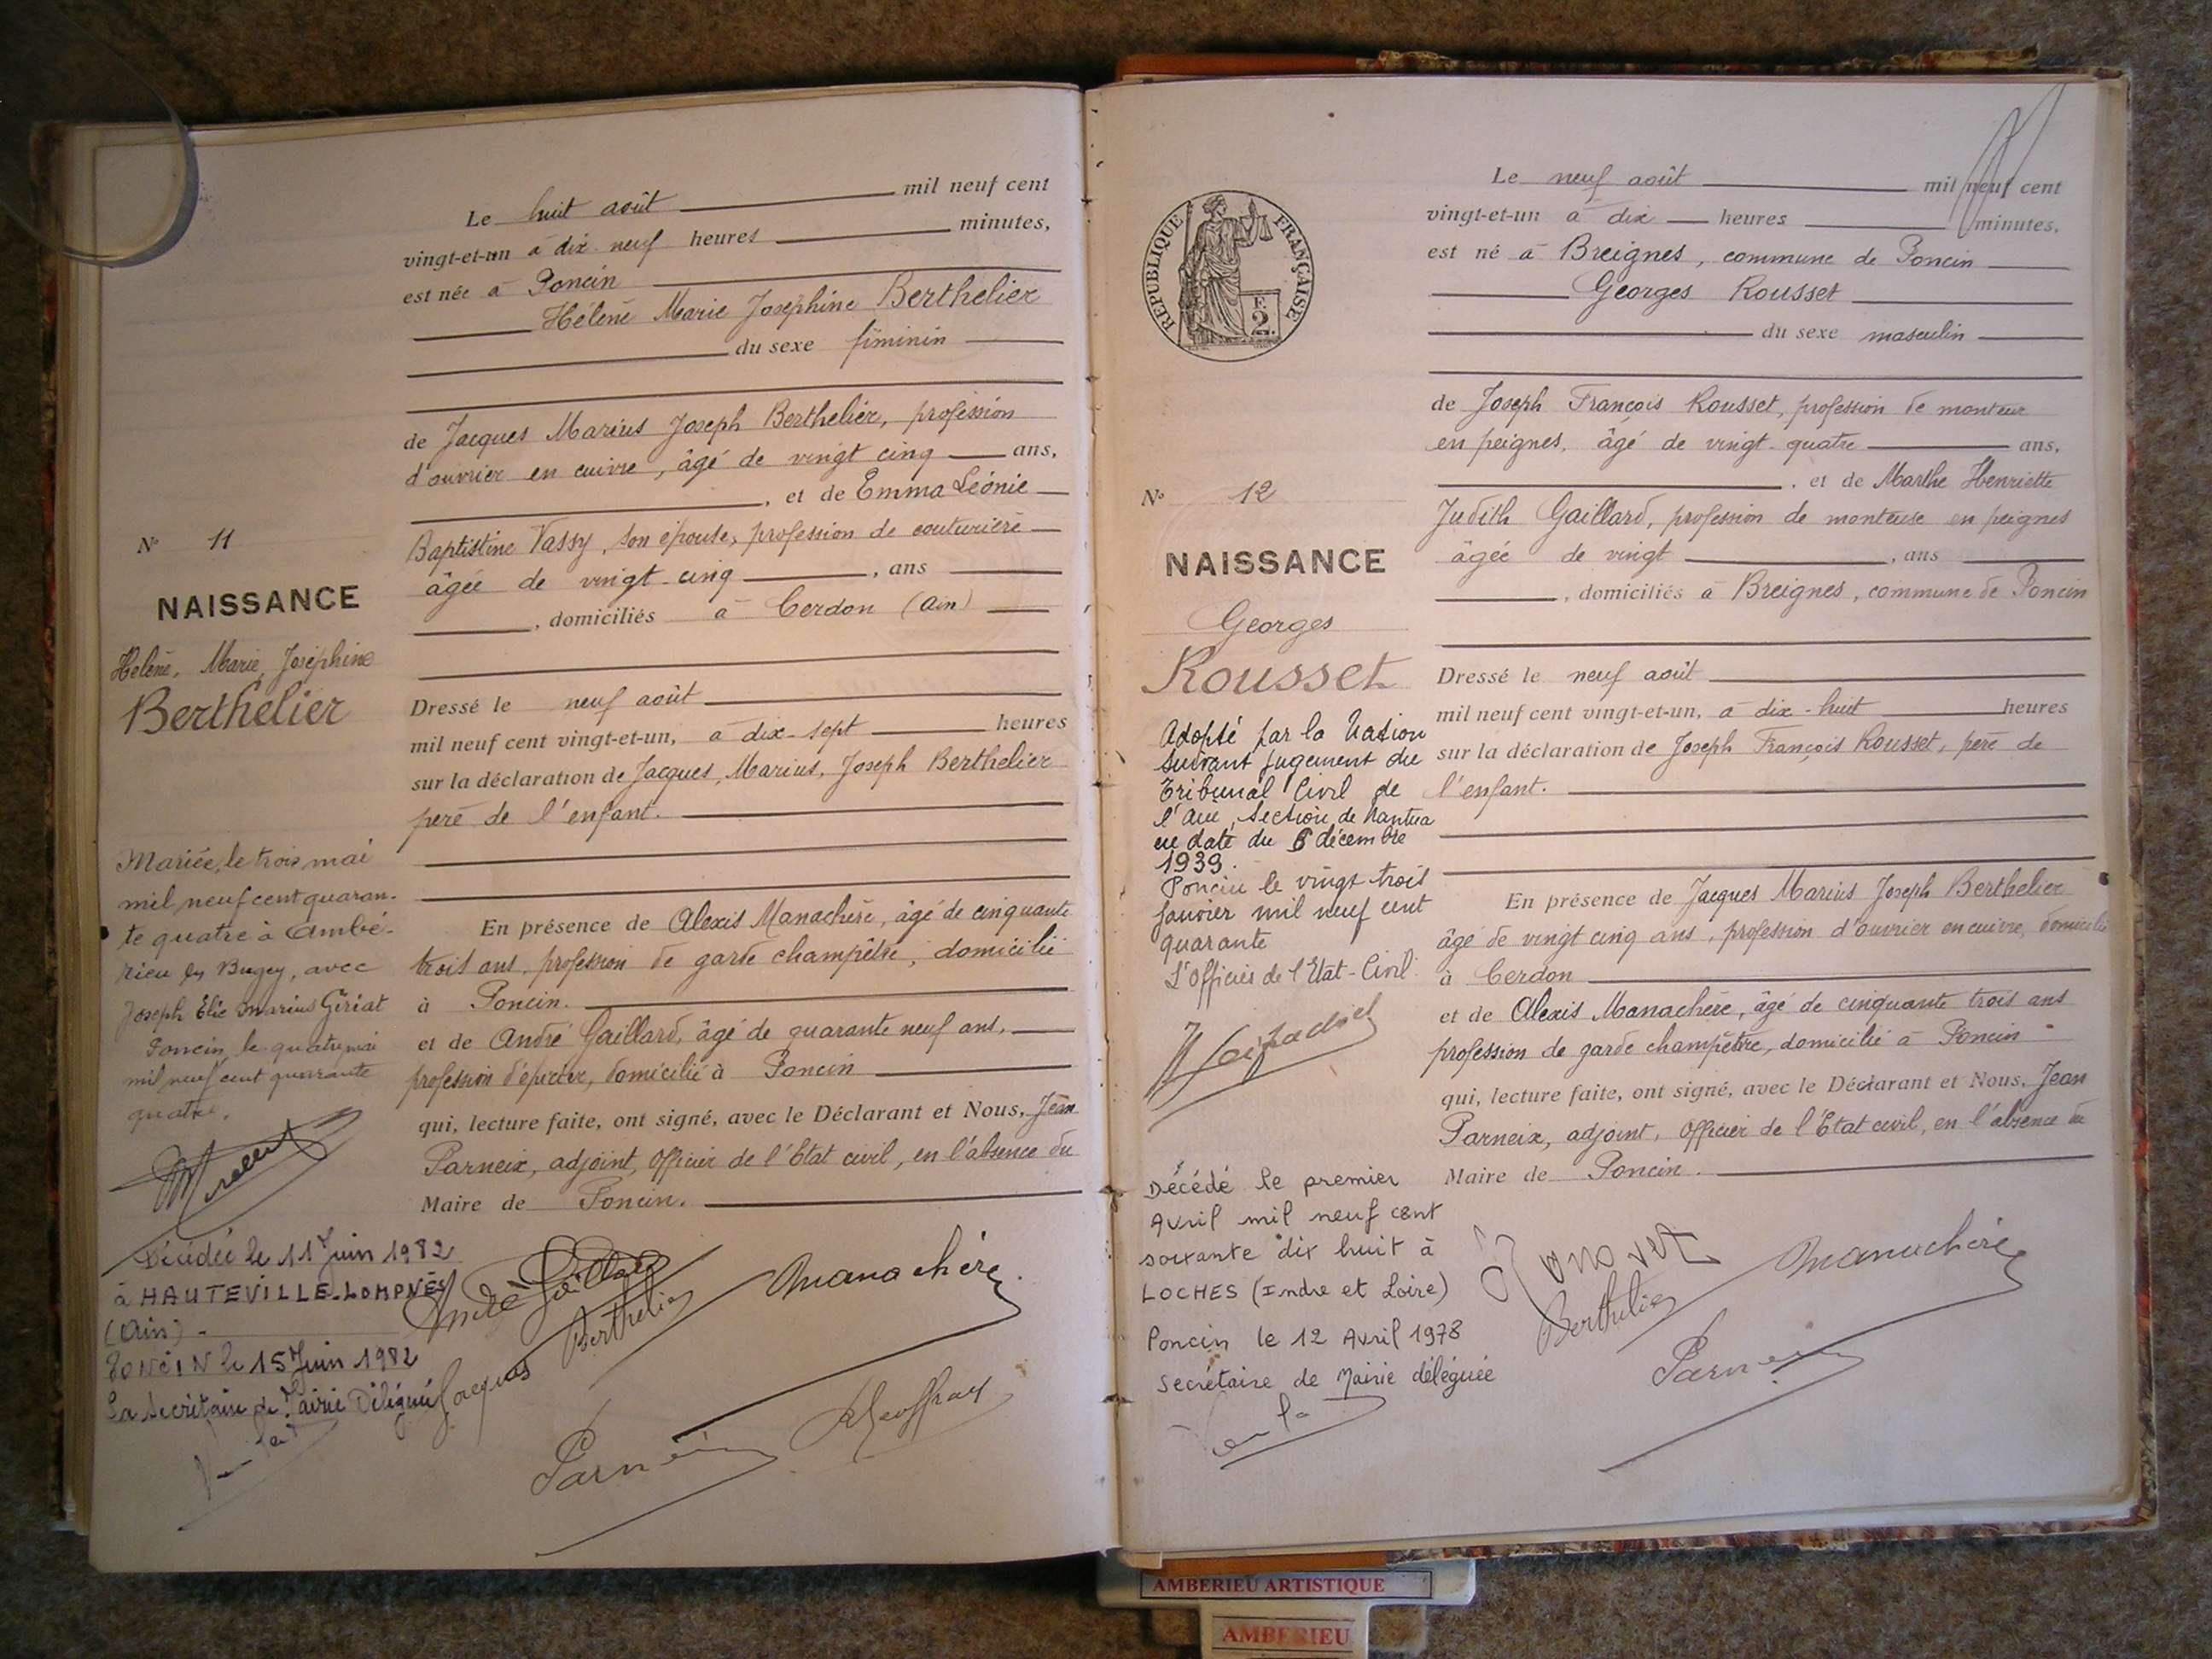 Le huit août mil neuf cent
vingt-et-un à dix neuf heures minutes,
est née à Poncin
Hélène Marie Joséphine Berthelier
du sexe féminin
de Jacques Marius Joseph Berthelier, profession
d'ouvrier en cuivre, âgé de vingt cinq ans,
, et de Emma Léonie
Baptistine Vassy, son épouse, profession de couturière
âgée de vingt-cinq , ans
, domiciliés à Cerdon (Ain)
Dressé le neuf août
mil neuf cent vingt-et-un, à dix-sept heures
sur la déclaration de Jacques, Marius, Joseph Berthelier
père de l'enfant.
En présence de Alexis Manachère, âgé de cinquante
trois ans, profession de garde champêtre, domicilié
à Poncin.
et de André Gaillard, âgé de quarante neuf ans,
profession d'épicier, domicilié à Poncin
qui, lecture faite, ont signé, avec le Déclarant et Nous, Jean
Parneix, adjoint, Officier de l'Etat civil, en l'absence du
Maire de Poncin.
André Gaillard
Manachère
Jacques Berthelier
Parneix
No 11
NAISSANCE
Hélène, Marie, Joséphine
Berthelier
Mariée, le trois mai
mil neuf cent quaran-
te quatre à Ambé-
rieu en Bugey, avec
Joseph Elie Marius Gériat
Poncin, le quatre mai
mil neuf cent quarante
quatre.
Décédée le 11 Juin 1982
à HAUTEVILLE-LOMPNES
(Ain) -
PONCIN le 15 Juin 1982
La Secrétaire de Mairie Déléguée
REPUBLIQUE FRANÇAISE
E
2
No 12
NAISSANCE
Georges
Rousset
Adopté par la Nation
suivant jugement du
Tribunal Civil de
l'Ain, Section de Nantua
en date du 6 décembre
1939.
Poncin le vingt trois
Janvier mil neuf cent
quarante
L'Officier de l'Etat-Civil
Décédé le premier
Avril mil neuf cent
soixante dix huit à
LOCHES (Indre et Loire)
Poncin le 12 Avril 1978
Secrétaire de Mairie déléguée
Le neuf août mil neuf cent
vingt-et-un à dix heures minutes,
est né à Breignes, commune de Poncin
Georges Rousset
du sexe masculin
de Joseph François Rousset, profession de monteur
en peignes, âgé de vingt-quatre ans,
, et de Marthe Henriette
Judith Gaillard, profession de monteuse en peignes
âgée de vingt , ans
, domiciliés à Breignes, commune de Poncin
Dressé le neuf août
mil neuf cent vingt-et-un, à dix-huit heures
sur la déclaration de Joseph François Rousset, père de
l'enfant.
En présence de Jacques Marius Joseph Berthelier
âgé de vingt cinq ans, profession d'ouvrier en cuivre, domicilié
à Cerdon
et de Alexis Manachère, âgé de cinquante trois ans
profession de garde champêtre, domicilié à Poncin
qui, lecture faite, ont signé, avec le Déclarant et Nous, Jean
Parneix, adjoint, Officier de l'Etat civil, en l'absence du
Maire de Poncin.
Manachère
Berthelier
Parneix
AMBERIEU ARTISTIQUE
AMBERIEU